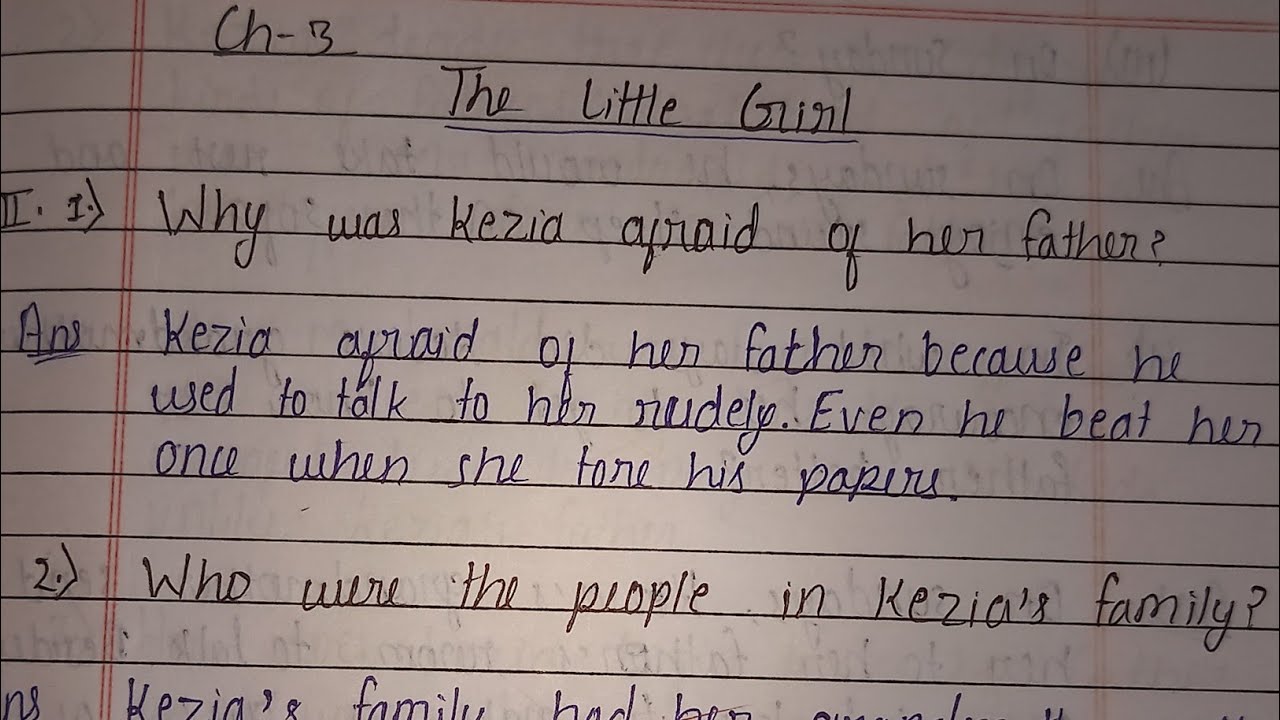 Ch-3
The Little Girl
II. 1.) Why was Kezia afraid of her father?
Ans Kezia afraid of her father because he
used to talk to her rudely. Even he beat her
once when she tore his papers.
2.) Who were the people in Kezia's family?
ns Kezia's family had her